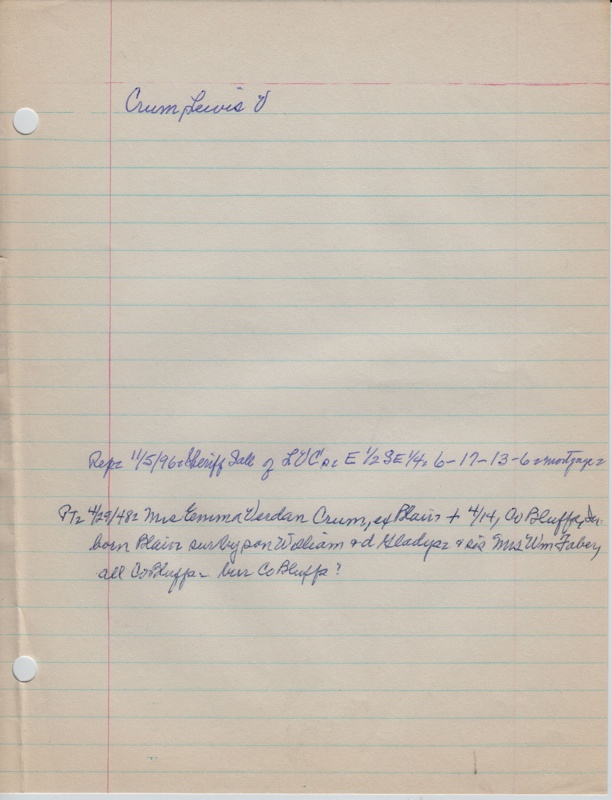 Crum, Lewis V
Rep= 11/5/96= Sheriff Sale of LVC's= E 1/2 SE 1/4= 6-17-13-6= mortgage=
PT= 4/29/48= Mrs Emma Verdan Crum, ex Blair= + 4/14, Co Bluffs,
born Blair= sur by son William + d Gladys= + sis Mrs Wm Faber,
all Co Bluffs= bur Co Bluffs?